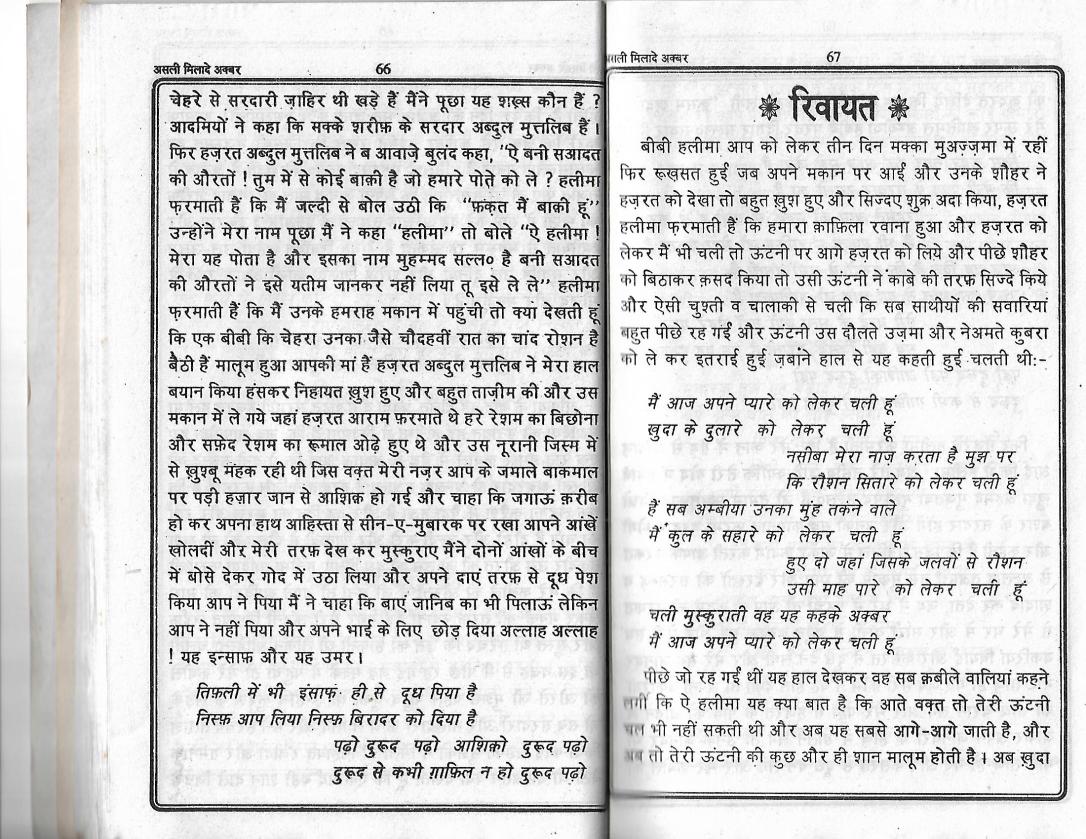 असली मिलादे अक्बर
66
चेहरे से सरदारी ज़ाहिर थी खड़े हैं मैंने पूछा यह शख़्स कौन हैं ?
आदमियों ने कहा कि मक्के शरीफ़ के सरदार अब्दुल मुत्तलिब हैं ।
फिर हज़रत अब्दुल मुत्तलिब ने ब आवाज़े बुलंद कहा, "ऐ बनी सआदत
की औरतों ! तुम में से कोई बाक़ी है जो हमारे पोते को ले ? हलीमा
फ़रमाती हैं कि मैं जल्दी से बोल उठी कि "फ़क़त मैं बाक़ी हूं"
उन्होंने मेरा नाम पूछा मैं ने कहा "हलीमा" तो बोले "ऐ हलीमा !
मेरा यह पोता है और इसका नाम मुहम्मद सल्ल० है बनी सआदत
की औरतों ने इसे यतीम जानकर नहीं लिया तू इसे ले ले" हलीमा
फ़रमाती हैं कि मैं उनके हमराह मकान में पहुंची तो क्या देखती हूं
कि एक बीबी कि चेहरा उनका जैसे चौदहवीं रात का चांद रोशन है
बैठी हैं मालूम हुआ आपकी मां हैं हज़रत अब्दुल मुत्तलिब ने मेरा हाल
बयान किया हंसकर निहायत ख़ुश हुए और बहुत ताज़ीम की और उस
मकान में ले गये जहां हज़रत आराम फ़रमाते थे हरे रेशम का बिछोना
और सफ़ेद रेशम का रूमाल ओढ़े हुए थे और उस नूरानी जिस्म में
से ख़ुश्बू मंहक रही थी जिस वक़्त मेरी नज़र आप के जमाले बाकमाल
पर पड़ी हज़ार जान से आशिक़ हो गई और चाहा कि जगाऊं क़रीब
हो कर अपना हाथ आहिस्ता से सीन-ए-मुबारक पर रखा आपने आंखें
खोलदीं और मेरी तरफ़ देख कर मुस्कुराए मैंने दोनों आंखों के बीच
में बोसे देकर गोद में उठा लिया और अपने दाएं तरफ़ से दूध पेश
किया आप ने पिया मैं ने चाहा कि बाएं जानिब का भी पिलाऊं लेकिन
आप ने नहीं पिया और अपने भाई के लिए छोड़ दिया अल्लाह अल्लाह
! यह इन्साफ़ और यह उमर ।
तिफ़ली में भी इंसाफ़ ही से दूध पिया है
निस्फ़ आप लिया निस्फ़ बिरादर को दिया है
पढ़ो दुरूद पढ़ो आशिको दुरूद पढ़ो
दुरूद से कभी ग़ाफ़िल न हो दुरूद पढ़ो
असली मिलादे अक्बर
67
रिवायत
बीबी हलीमा आप को लेकर तीन दिन मक्का मुअज़्ज़मा में रहीं
फिर रूख़सत हुई जब अपने मकान पर आई और उनके शौहर ने
हज़रत को देखा तो बहुत ख़ुश हुए और सिज्दए शुक्र अदा किया, हज़रत
हलीमा फ़रमाती हैं कि हमारा क़ाफ़िला रवाना हुआ और हज़रत को
लेकर मैं भी चली तो ऊंटनी पर आगे हज़रत को लिये और पीछे शौहर
को बिठाकर क़सद किया तो उसी ऊंटनी ने काबे की तरफ़ सिज्दे किये
और ऐसी चुश्ती व चालाकी से चली कि सब साथीयों की सवारियां
बहुत पीछे रह गईं और ऊंटनी उस दौलते उज़मा और नेअमते कुबरा
को ले कर इतराई हुई ज़बाने हाल से यह कहती हुई चलती थी:-
मैं आज अपने प्यारे को लेकर चली हूं
खुदा के दुलारे को लेकर चली हूं
नसीबा मेरा नाज़ करता है मुझ पर
कि रौशन सितारे को लेकर चली हूं
हैं सब अम्बीया उनका मुंह तकने वाले
मैं कुल के सहारे को लेकर चली हूं
हुए दो जहां जिसके जलवों से रौशन
उसी माह पारे को लेकर चली हूं
चली मुस्कुराती वह यह कहके अक्बर
मैं आज अपने प्यारे को लेकर चली हूं
पीछे जो रह गईं थीं यह हाल देखकर वह सब क़बीले वालियां कहने
लगीं कि ऐ हलीमा यह क्या बात है कि आते वक़्त तो तेरी ऊंटनी
चल भी नहीं सकती थी और अब यह सबसे आगे-आगे जाती है, और
अब तो तेरी ऊंटनी की कुछ और ही शान मालूम होती है । अब ख़ुदा